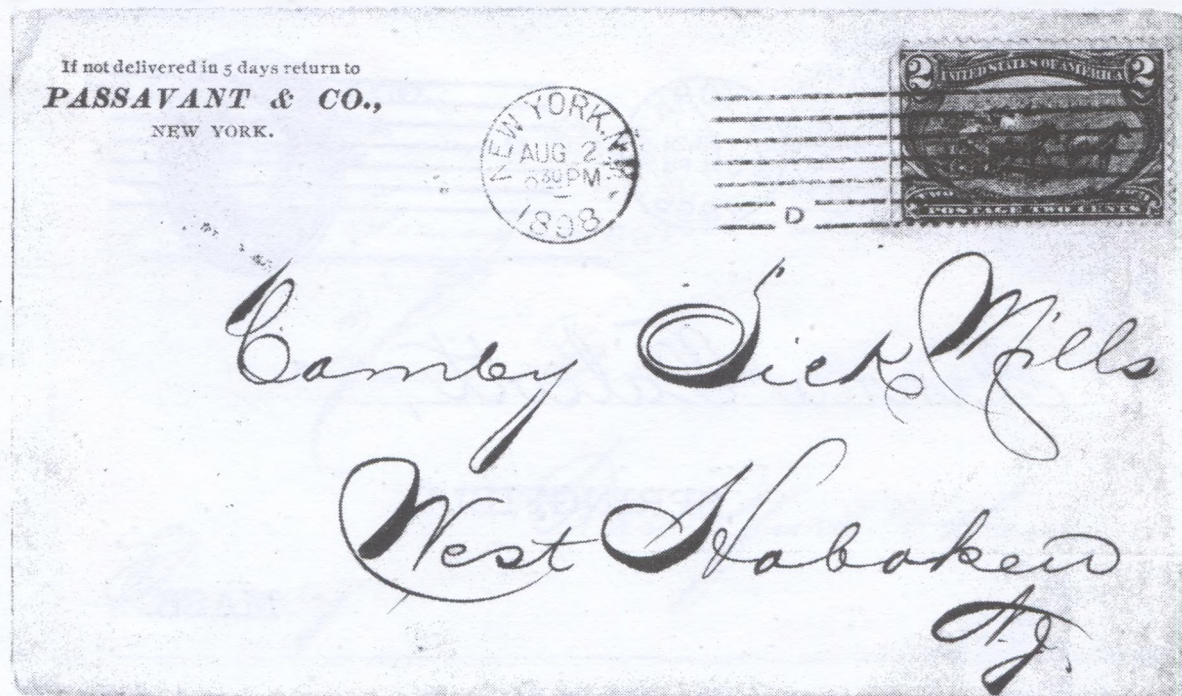 If not delivered in 5 days return to
PASSAVANT & CO.,
NEW YORK.
NEW YORK, N.Y.
AUG 2
PM
1898
D
2 UNITED STATES OF AMERICA 2
2 POSTAGE TWO CENTS 2
Comby Silk Mills
West Hoboken
N.J.